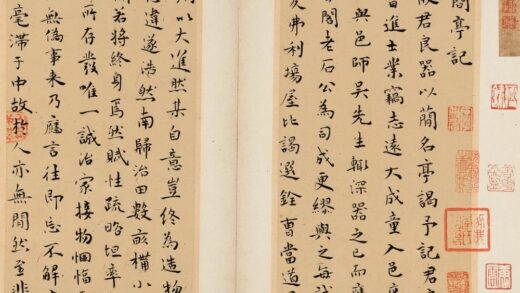 亭記
君民器以簡名亭謁予記君
進士業竊志遠大成童入邑
與邑師吳先生輙深器之已而應
閣老石公為司成更繆與之每
弗利場屋比謁選銓曹當道
以大進然某自意豈終為造物
違遂浩然南歸治田數畝構小
若將終身焉然賦性疏略坦率
所存發唯一誠治家接物悃愊
無偽事来乃應言往即忘不解
毫滯于中故於人亦無間然至非